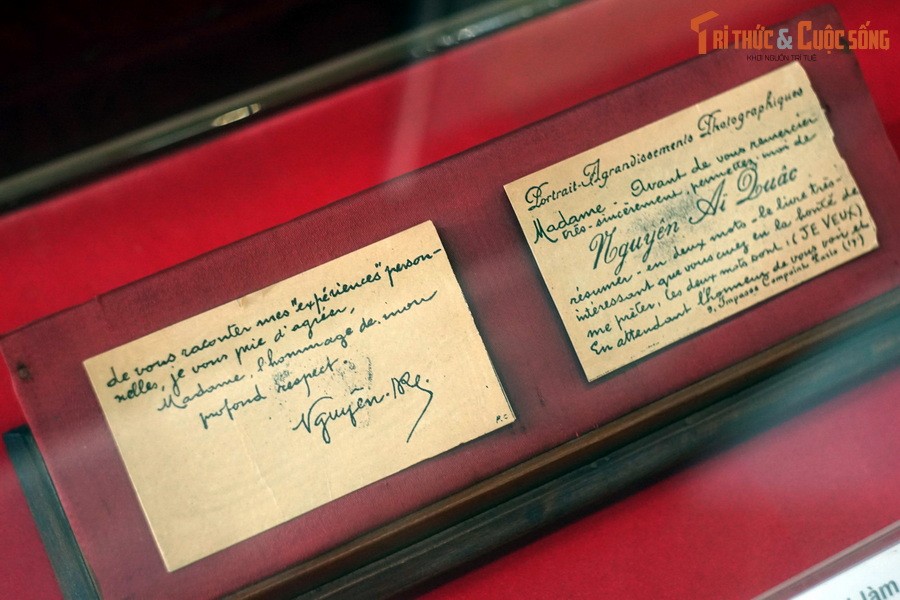 TRI THỨC & CUỘC SỐNG
KHƠI NGUỒN TRI TUỆ
Portrait-Agrandissements Photographiques
Madame. Avant de vous remercier
très-sincèrement, permettez-moi de
Nguyên Aï Quâc
résumer - en deux mots - le livre très-
intéressant que vous avez eu la bonté de
me prêter. Ces deux mots sont: (JE VEUX)
En attendant l'honneur de vous voir et
9, Impasse Compoint Paris (17)
de vous raconter mes "expériences" person-
nelles, je vous prie d'agréer,
Madame, l'hommage de mon
profond respect.
Nguyên
P.C
làm